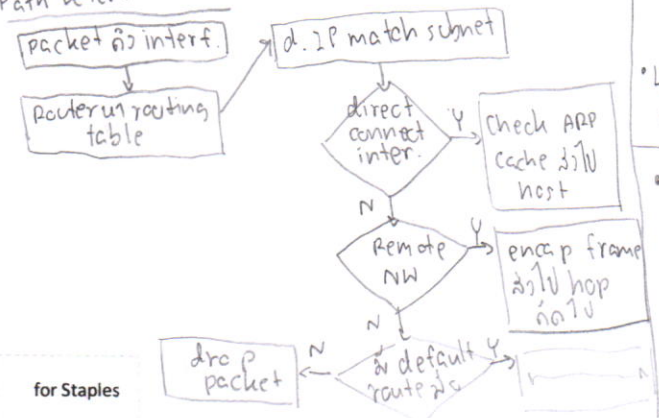 Path
packet ถึง interf.
Router หา routing
table
d. IP match subnet
direct
connect
inter.
Y
Check ARP
cache ส่งไป
host
N
Remote
NW
Y
encap frame
ส่งไป hop
ถัดไป
N
มี default
route
Y
N
drop
packet
for Staples